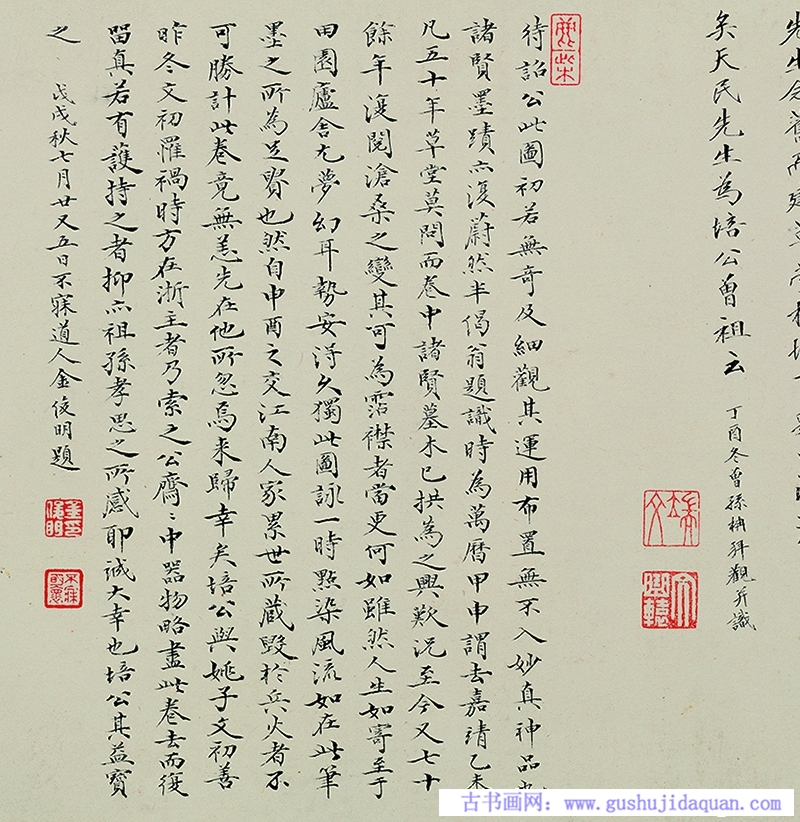 先生念舊
矣天民先生為培公曾祖云
丁酉冬曾孫柟拜觀并識
鹿柴
待詔公此圖初若無奇及細觀其運用布置無不入妙真神品也
諸賢墨蹟亦復蔚然半偈翁題識時為萬曆甲申謂去嘉靖乙未
凡五十年草堂莫問而卷中諸賢墓木已拱為之興歎況至今又七十
餘年復閱滄桑之變其可為霑襟者當更何如雖然人生如寄至于
田園廬舍尤夢幻耳勢安得久獨此圖詠一時點染風流如在此筆
墨之所為足貴也然自申酉之交江南人家累世所藏毀於兵火者不
可勝計此卷竟無恙先在他所忽焉来歸幸矣培公與姚子文初善
昨冬文初罹禍時方在浙主者乃索之公齋〻中器物略盡此卷去而復
留真若有護持之者抑亦祖孫孝思之所感耶誠大幸也培公其益寶
之 戊戌秋七月廿又五日不寐道人金俊明題
古书画网：www.gushujidaquan.com